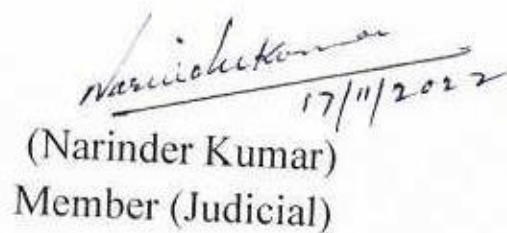 Narinder Kumar
17/11/2022
(Narinder Kumar)
Member (Judicial)